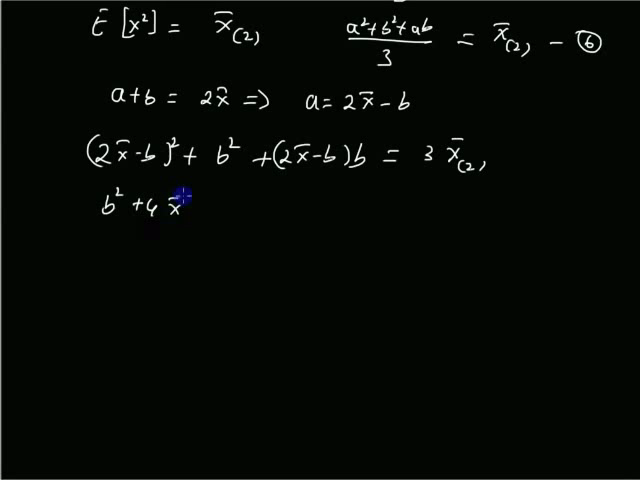 E [x²] = x̄₍₂₎    (a²+b²+ab)/3 = x̄₍₂₎ - ⑥
a+b = 2x̄ => a = 2x̄ - b
(2x̄-b)² + b² + (2x̄-b)b = 3 x̄₍₂₎
b² + 4 x̄